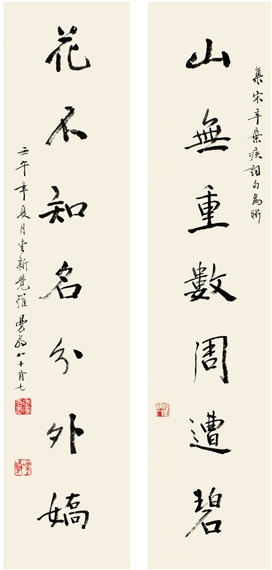 山無重數周遭碧
集宋辛棄疾詞句為聯
花不知名分外嬌
壬午年夏月愛新覺羅曼翁八十有七